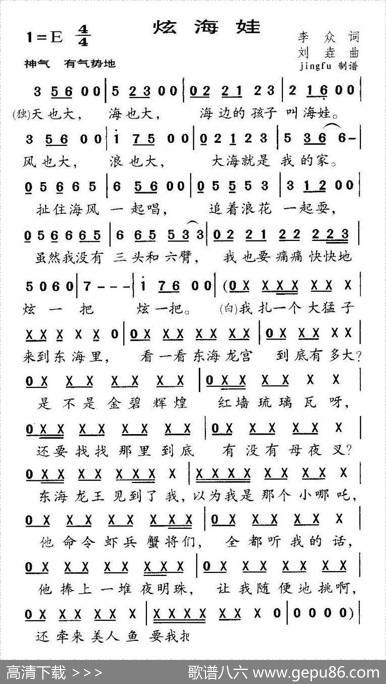 炫海娃
1=E 4/4
李众 词
刘垚 曲
jingfu 制谱
神气 有气势地
3 5 6 0 0 | 5 2 3 0 0 | 0 2 2 1 2 3 | 3 1 2 0 0 |
(独)天也大， 海也大， 海边的孩子 叫海娃。
3 5 6 0 0 | i 7 5 0 0 | 0 2 1 2 3 | 5 3 6 6 - |
风也大， 浪也大， 大海就是 我的家。
0 5 6 6 5 | 6 5 6 0 0 | 0 5 5 2 3 | 3 1 2 0 0 |
扯住海风 一起唱， 追着浪花 一起耍，
0 5 6 6 6 5 | 6 6 5 5 3 3 | 0 2 2 1 2 | 2 2 2 3 3 |
虽然我没有 三头和六臂， 我也要痛痛快快地
5 0 6 0 | 7 - - - | i 7 6 0 0 | (0 X X X X X X |
炫一把 炫一把。 (白)我扎一个大猛子
X X X X X 0 | 0 X X X X X X | X X X X X |
来到东海里， 看一看东海龙宫 到底有多大？
0 X X X | X X X X | 0 X X X X | X X |
是不是金碧辉煌 红墙琉璃瓦呀，
0 X X X X | X X X X | 0 X X X | X X X |
还要找找那里到底 有没有母夜叉？
0 X X X X | X X X X | X X X X X | X X X X |
东海龙王见到了我，以为我是那个小哪吒，
0 X X X X X | X X X X | 0 X X X X | X X X |
他命令虾兵蟹将们， 全都听我的话，
0 X X X X X | X X X | 0 X X X X X | X X X |
他捧上一堆夜明珠， 让我随便地挑啊，
0 X X X X | X X X X X | X X X X X X | X 0 0 0 0 |
还牵来美人鱼 要我把
高清下载 >>>
歌谱八六 www.gepu86.com